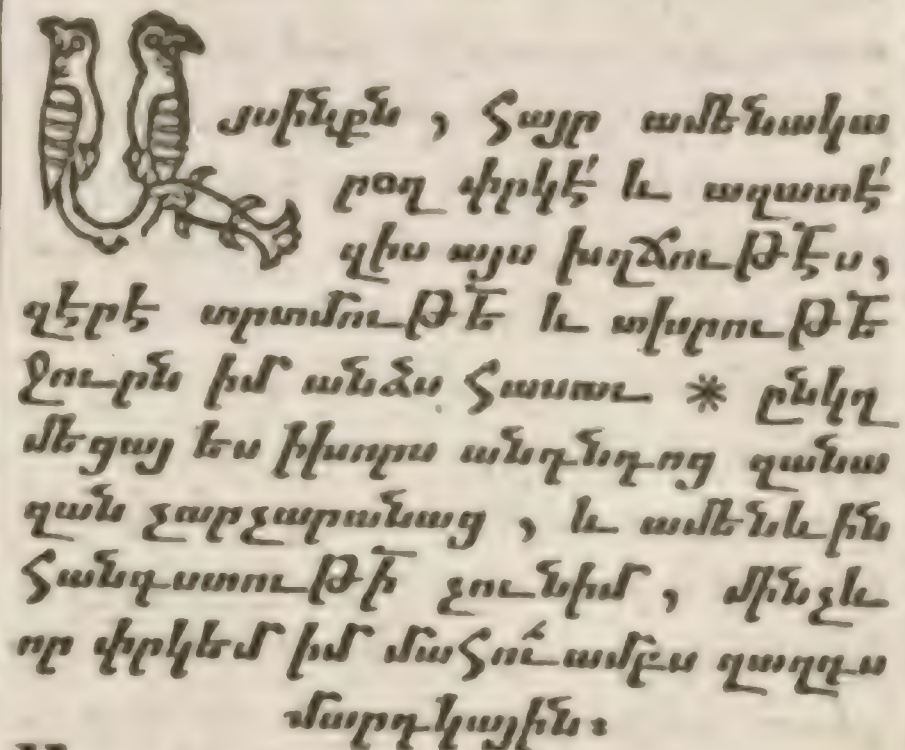 Այսինքն, Հայր ամենակա
րօղ փրկէ՛ և ազատէ՛
զիս այս խղճութէ՜ս,
զէրէ տրտմութե՜ և տխրութե՜
Ջուրն իմ անձս հասաւ * ընկղ
մեցայ ես ի խորս անդնդոց զանա
զան չարչարանաց, և ամենևին
հանգստութի՜ չունիմ, մինչև
որ փրկեմ իմ մահո՛ւամբս զազգս
մարդկային։